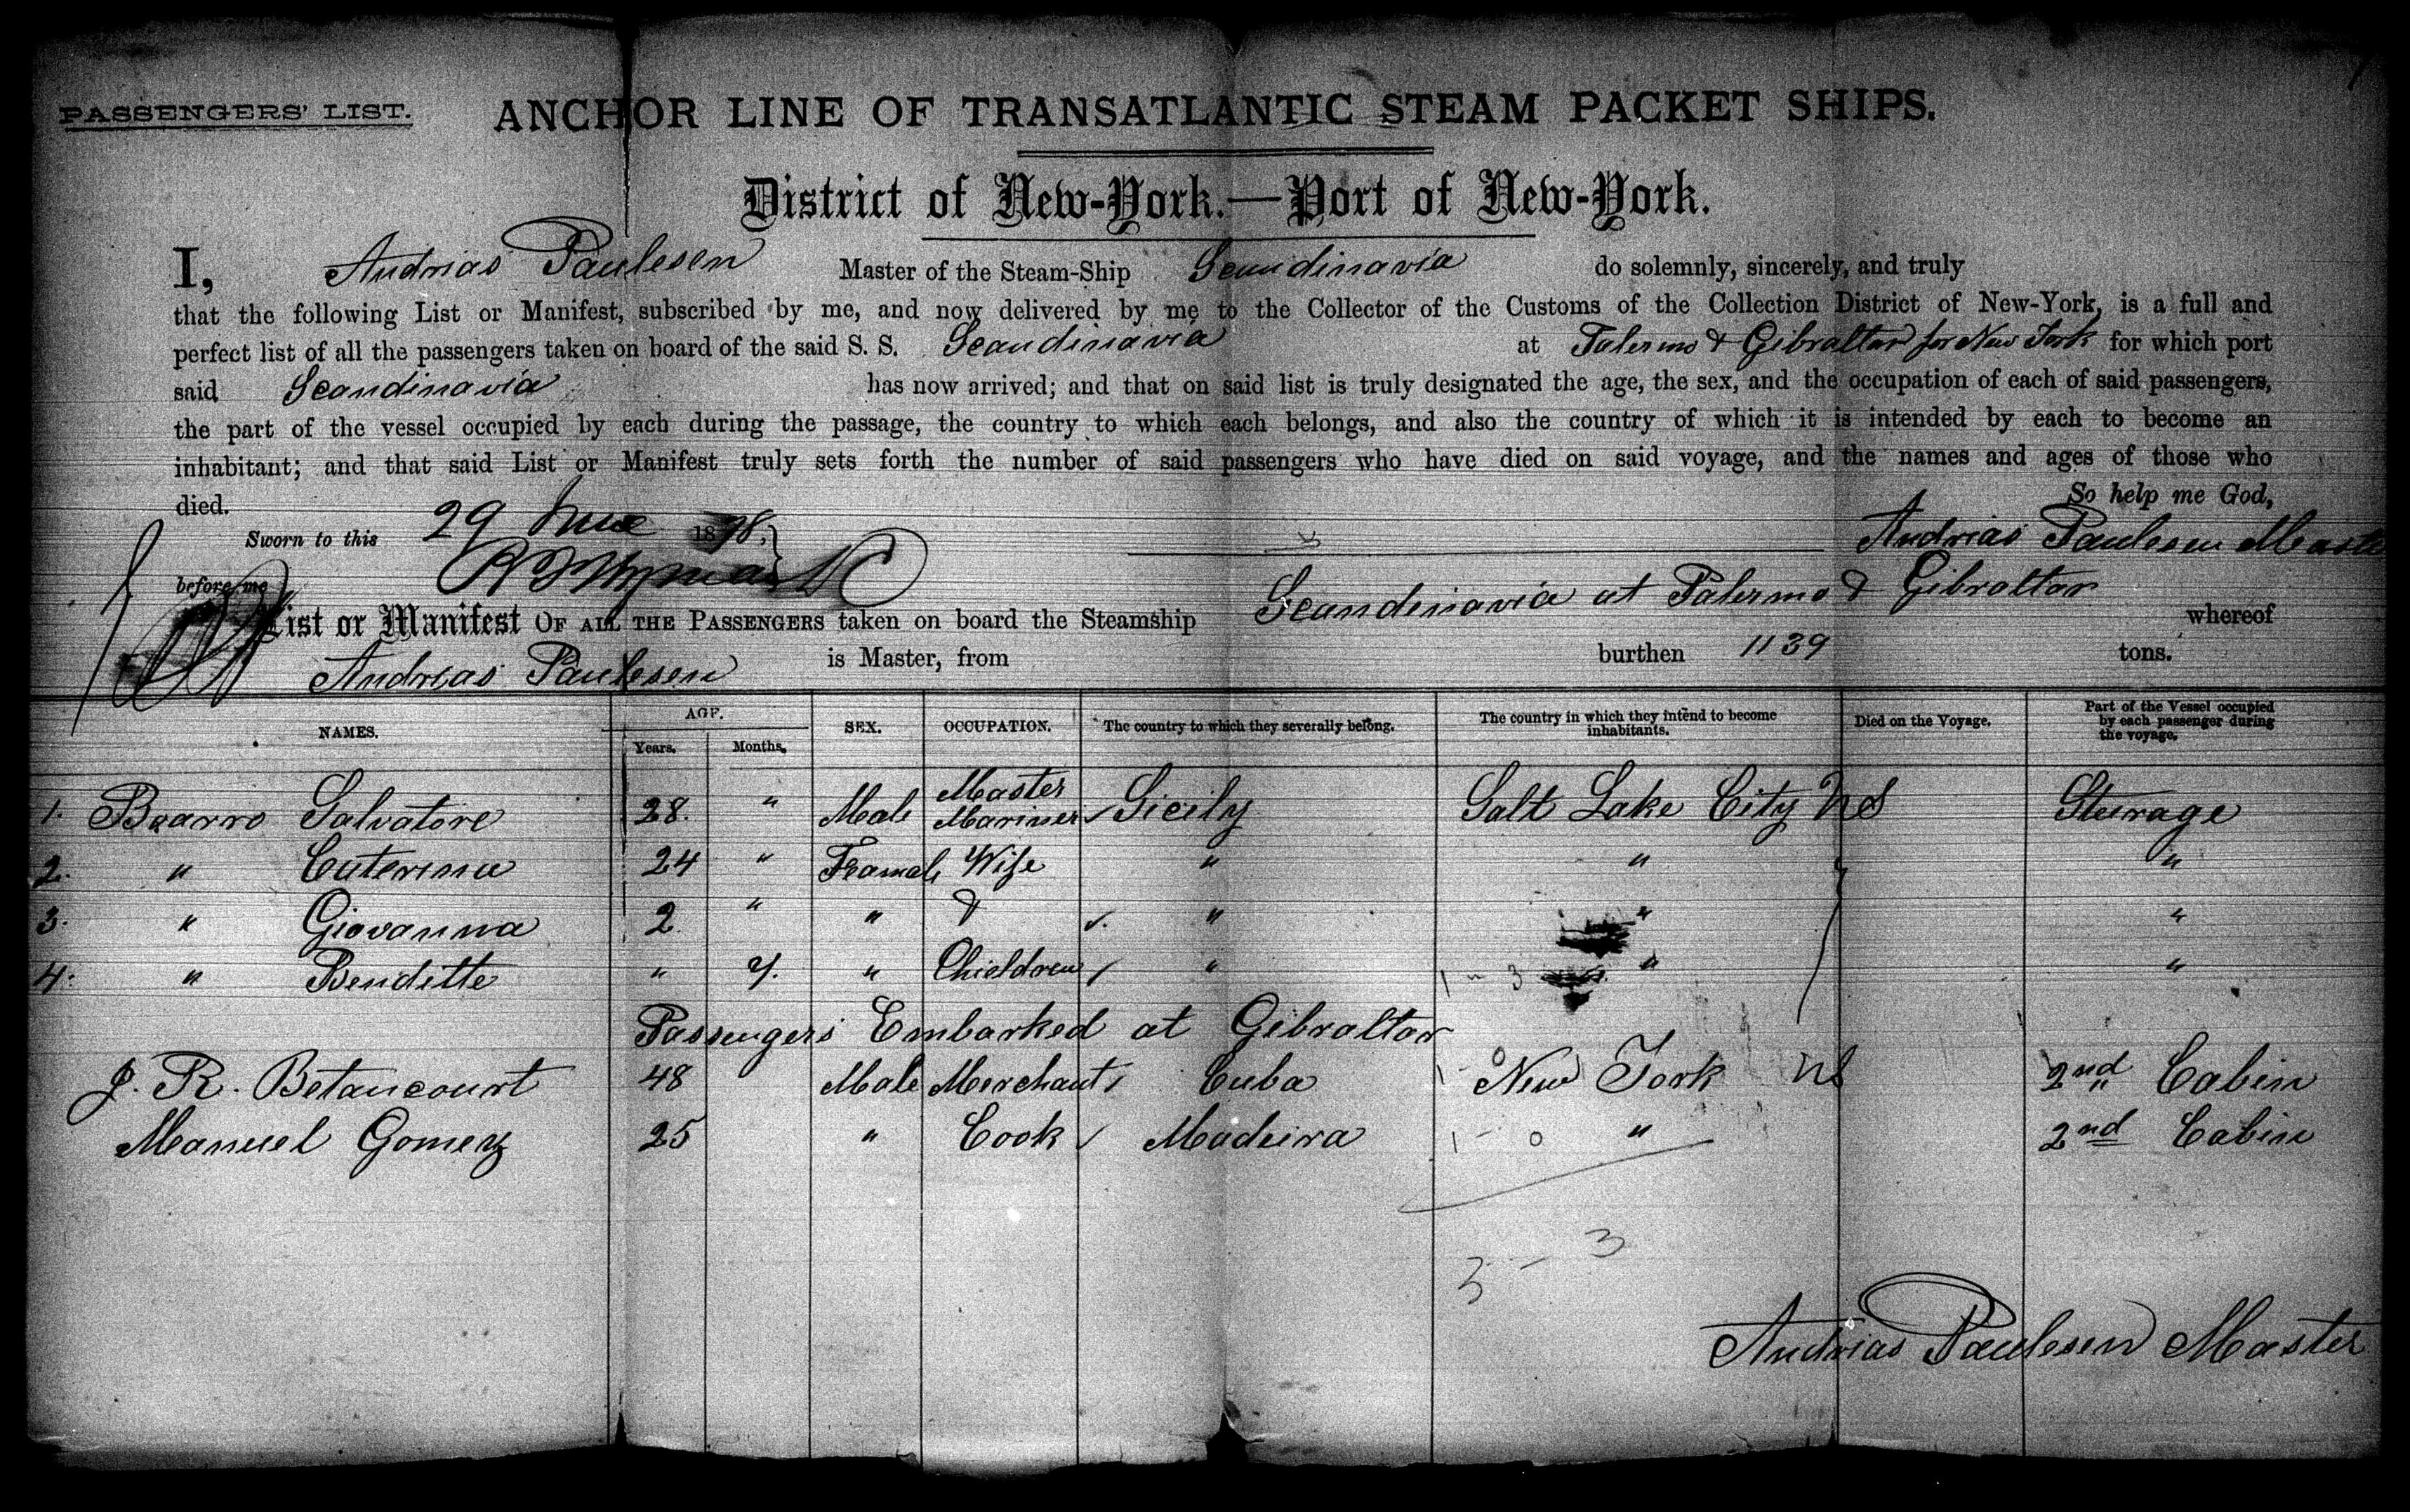 PASSENGERS' LIST.
ANCHOR LINE OF TRANSATLANTIC STEAM PACKET SHIPS.
District of New-York.—Port of New-York.
I, Andrias Paulesen Master of the Steam-Ship Scandinavia do solemnly, sincerely, and truly
that the following List or Manifest, subscribed by me, and now delivered by me to the Collector of the Customs of the Collection District of New-York, is a full and
perfect list of all the passengers taken on board of the said S. S. Scandinavia at Palermo & Gibraltar for New York for which port
said Scandinavia has now arrived; and that on said list is truly designated the age, the sex, and the occupation of each of said passengers,
the part of the vessel occupied by each during the passage, the country to which each belongs, and also the country of which it is intended by each to become an
inhabitant; and that said List or Manifest truly sets forth the number of said passengers who have died on said voyage, and the names and ages of those who
died. So help me God,
Sworn to this 29 June 1878. Andrias Paulesen Master
before me
List or Manifest OF ALL THE PASSENGERS taken on board the Steamship Scandinavia at Palermo & Gibraltar whereof
Andrias Paulesen is Master, from burthen 1139 tons.
NAMES. AGE. Years. Months. SEX. OCCUPATION. The country to which they severally belong. The country in which they intend to become inhabitants. Died on the Voyage. Part of the Vessel occupied by each passenger during the voyage.
1. Salvatore 28. " Male Master Mariner Sicily Salt Lake City Sturage
2. " Caterina 24 " Feamale Wife " " "
3. " Giovanna 2. " " & " " "
4. " Bendette " " Chieldren " " "
1 - 3
Passengers Embarked at Gibraltar
J. R. Betancourt 48 Male Merchant Cuba 1 - 0 New York 2nd Cabin
Manuel Gomez 25 " Cook Madeira 1 - 0 " 2nd Cabin
3 - 3
Andrias Paulesen Master